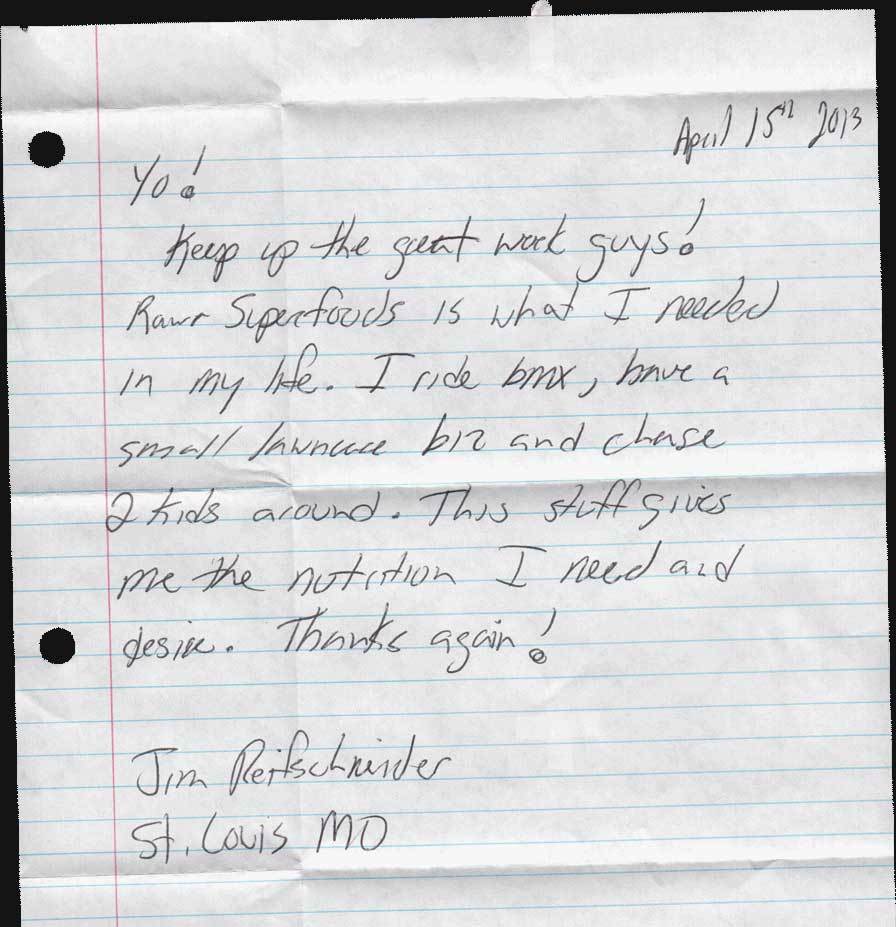 April 15th 2013
Yo!
Keep up the great work guys!
Rawr Superfoods is what I needed
in my life. I ride bmx, have a
small lawncare biz and chase
2 kids around. This stuff gives
me the nutrition I need and
desire. Thanks again!
Jim Reifschneider
St. Louis MO